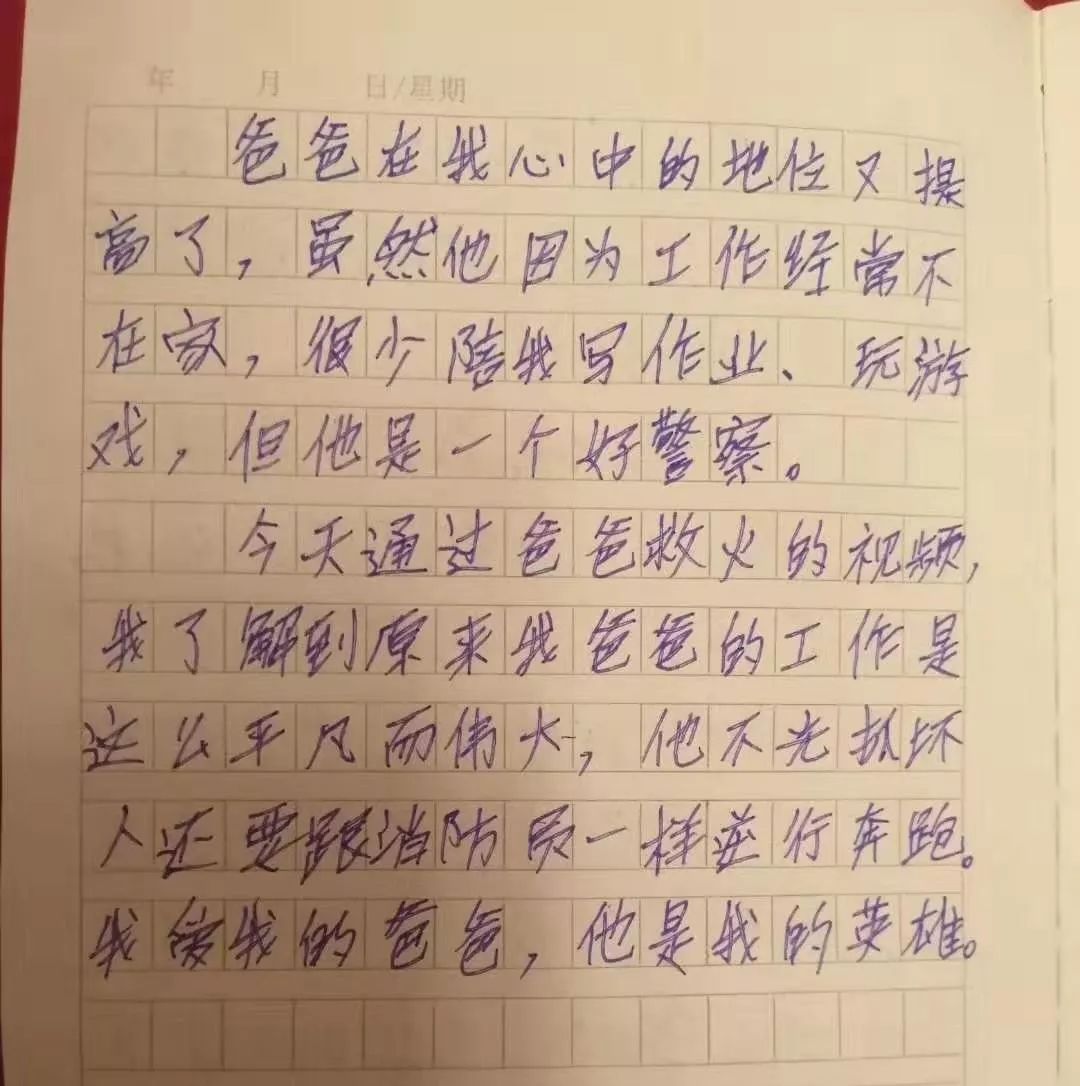 年 月 日/星期
爸爸在我心中的地位又提
高了，虽然他因为工作经常不
在家，很少陪我写作业、玩游
戏，但他是一个好警察。
今天通过爸爸救火的视频，
我了解到原来我爸爸的工作是
这么平凡而伟大，他不光抓坏
人还要跟消防员一样逆行奔跑。
我爱我的爸爸，他是我的英雄。